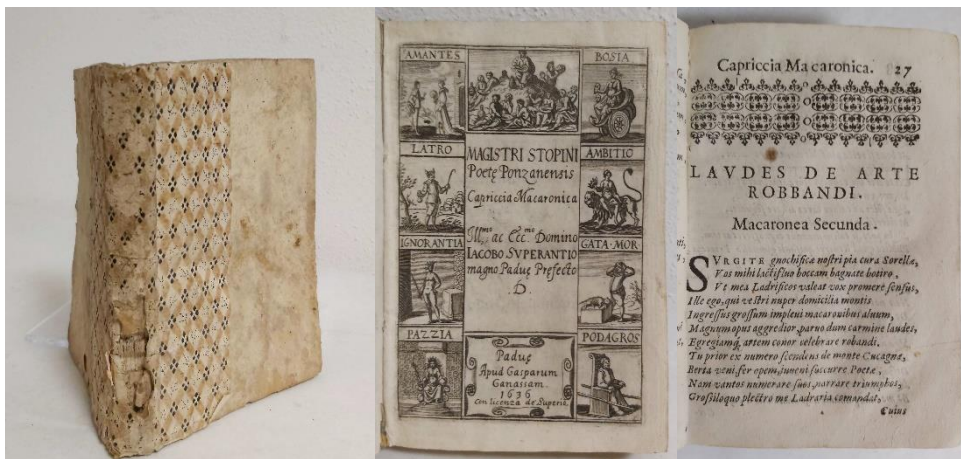 AMANTES
BOSIA
LATRO
AMBITIO
IGNORANTIA
GATA·MOR
PAZZIA
PODAGROS
MAGISTRI STOPINI
Poetę Ponzanensis
Capriccia Macaronica
Ill.mo ac Ecc.mo Domino
IACOBO SVPERANTIO
magno Paduę Prefecto
.D.
Paduę
Apud Gasparum
Ganassam.
1636
Con licenza de Superio.
Capriccia Macaronica. 27
LAVDES DE ARTE
ROBBANDI.
Macaronea Secunda.
SVRGITE gnochificæ nostri pia cura Sorellæ,
Vas mihi lactifluo boccam bagnate botiro,
Vt mea Ladrificos valeat vox promere sensus,
Ille ego, qui vestri nuper domicilia montis
Ingressus grossum impleui macaronibus aluum,
Magnum opus aggredior, paruo dum carmine laudes,
Egregiamq; artem conor celebrare robandi.
Tu prior ex numero scendens de monte Cucagnæ,
Berta veni, fer opem, iuueni succurre Poetæ,
Nam vantos numerare suos, narrare triumphos,
Grossiloquo plectro me Ladraria comandat,
Cuius